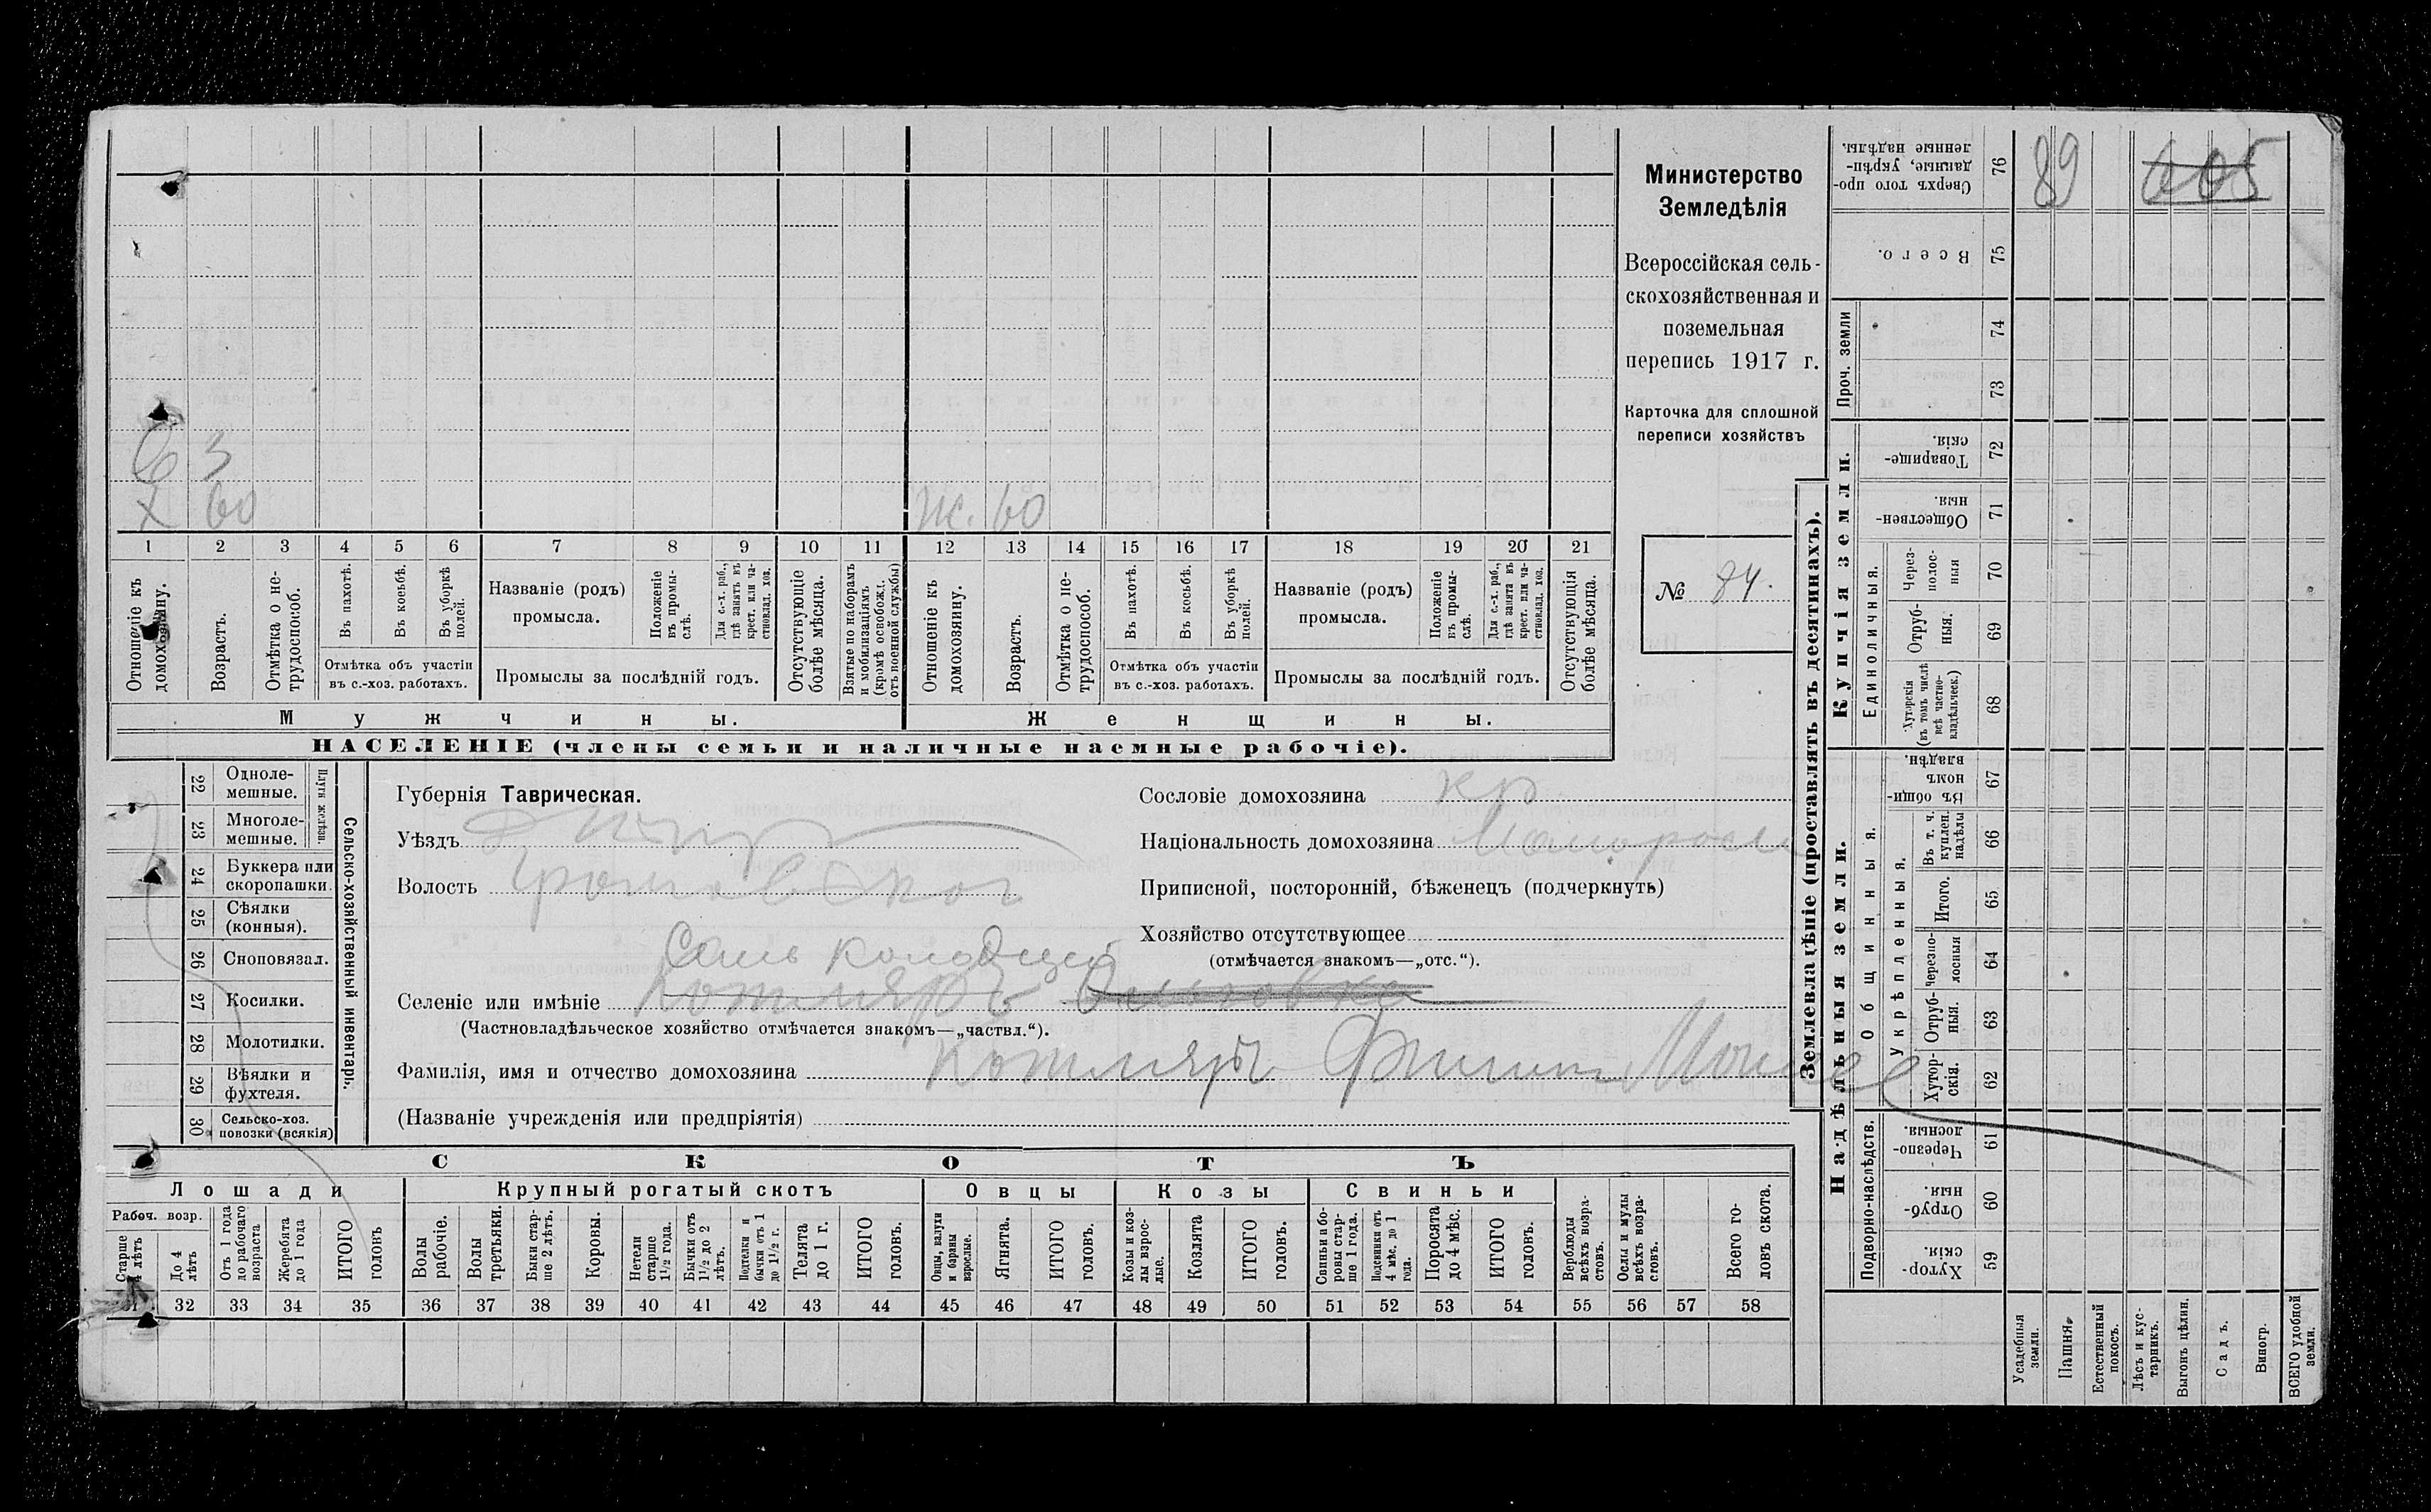 Министерство
Земледѣлія
Всероссійская сель-
скохозяйственная и
поземельная
перепись 1917 г.
Карточка для сплошной
переписи хозяйствъ
№ 84.
С 3
Х 60
Ж. 60
1 2 3 4 5 6 7 8 9 10 11 12 13 14 15 16 17 18 19 20 21
Отношеніе къ домохозяину.
Возрастъ.
Отмѣтка о не-трудоспособ.
Въ пахотѣ.
Въ косьбѣ.
Въ уборкѣ полей.
Отмѣтка объ участіи
въ с.-хоз. работахъ.
Названіе (родъ)
промысла.
Положеніе въ промы-слѣ.
Для с.-х. раб., гдѣ занятъ въ крест. или ча-стновлад. хоз.
Промыслы за послѣдній годъ.
Отсутствующіе болѣе мѣсяца.
Взятые по наборамъ и мобилизаціямъ (кромѣ освобожд. отъ военной службы)
Отношеніе къ домохозяину.
Возрастъ.
Отмѣтка о не-трудоспособ.
Въ пахотѣ.
Въ косьбѣ.
Въ уборкѣ полей.
Отмѣтка объ участіи
въ с.-хоз. работахъ.
Названіе (родъ)
промысла.
Положеніе въ промы-слѣ.
Для с.-х. раб., гдѣ занята въ крест. или ча-стновлад. хоз.
Промыслы за послѣдній годъ.
Отсутствующія болѣе мѣсяца.
Мужчины.
Женщины.
НАСЕЛЕНІЕ (члены семьи и наличные наемные рабочіе).
Сельско-хозяйственный инвентарь.
Плуги желѣзн.
22 Одноле-мешные.
23 Многоле-мешные.
24 Буккера или скоропашки.
25 Сѣялки (конныя).
26 Сноповязал.
27 Косилки.
28 Молотилки.
29 Вѣялки и фухтеля.
30 Сельско-хоз. повозки (всякія)
Губернія Таврическая.
Уѣздъ
Волость
Семь колодцей
Селеніе или имѣніе Котляръ
(Частновладѣльческое хозяйство отмѣчается знакомъ—„частвл.“).
Фамилія, имя и отчество домохозяина Котляръ Филипп Моисе
(Названіе учрежденія или предпріятія)
Сословіе домохозяина кр.
Національность домохозяина Малоросс
Приписной, посторонній, бѣженецъ (подчеркнуть)
Хозяйство отсутствующее
(отмѣчается знакомъ—„отс.“).
СКОТЪ
Лошади
Крупный рогатый скотъ
Овцы
Козы
Свиньи
Рабоч. возр.
Старше 4 лѣтъ
До 4 лѣтъ
Отъ 1 года до рабочаго возраста
Жеребята до 1 года
ИТОГО головъ
Волы рабочіе.
Волы третьяки.
Быки стар-ше 2 лѣтъ.
Коровы.
Нетели старше 1½ года.
Бычки отъ 1½ до 2 лѣтъ.
Подтелки и бычки отъ 1 до 1½ г.
Телята до 1 г.
ИТОГО головъ.
Овцы, валухи и бараны взрослые.
Ягнята.
ИТОГО головъ.
Козы и коз-лы взрос-лые.
Козлята
ИТОГО головъ.
Свиньи и бо-ровы стар-ше 1 года.
Подсвинки отъ 4 мѣс. до 1 года.
Поросята до 4 мѣс.
ИТОГО головъ.
Верблюды всѣхъ возра-стовъ.
Ослы и мулы всѣхъ возра-стовъ.
Всего го-ловъ скота.
31 32 33 34 35 36 37 38 39 40 41 42 43 44 45 46 47 48 49 50 51 52 53 54 55 56 57 58
Землевладѣніе (проставлять въ десятинахъ).
Надѣльныя земли.
Купчія земли.
Проч. земли
Подворно-наслѣдств.
Общинныя.
Укрѣпленныя.
Единоличныя.
Хутор-скія. 59
Отруб-ныя. 60
Черезпо-лосныя. 61
Хутор-скія. 62
Отруб-ныя. 63
Черезпо-лосныя 64
Итого. 65
Въ т. ч. куплен. надѣлы 66
Въ общин-номъ владѣн. 67
Хуторскія (въ томъ числѣ всѣ частно-владѣльческ.) 68
Отруб-ныя. 69
Через-полос-ныя 70
Обществен-ныя. 71
Товарище-скія. 72
73
74
Всего. 75
Сверхъ того про-данные, укрѣп-ленные надѣлы. 76
89
Усадебныя земли.
Пашня.
Естественный покосъ.
Лѣсъ и кус-тарникъ.
Выгонъ цѣлин.
Садъ.
Виногр.
ВСЕГО удобной земли.